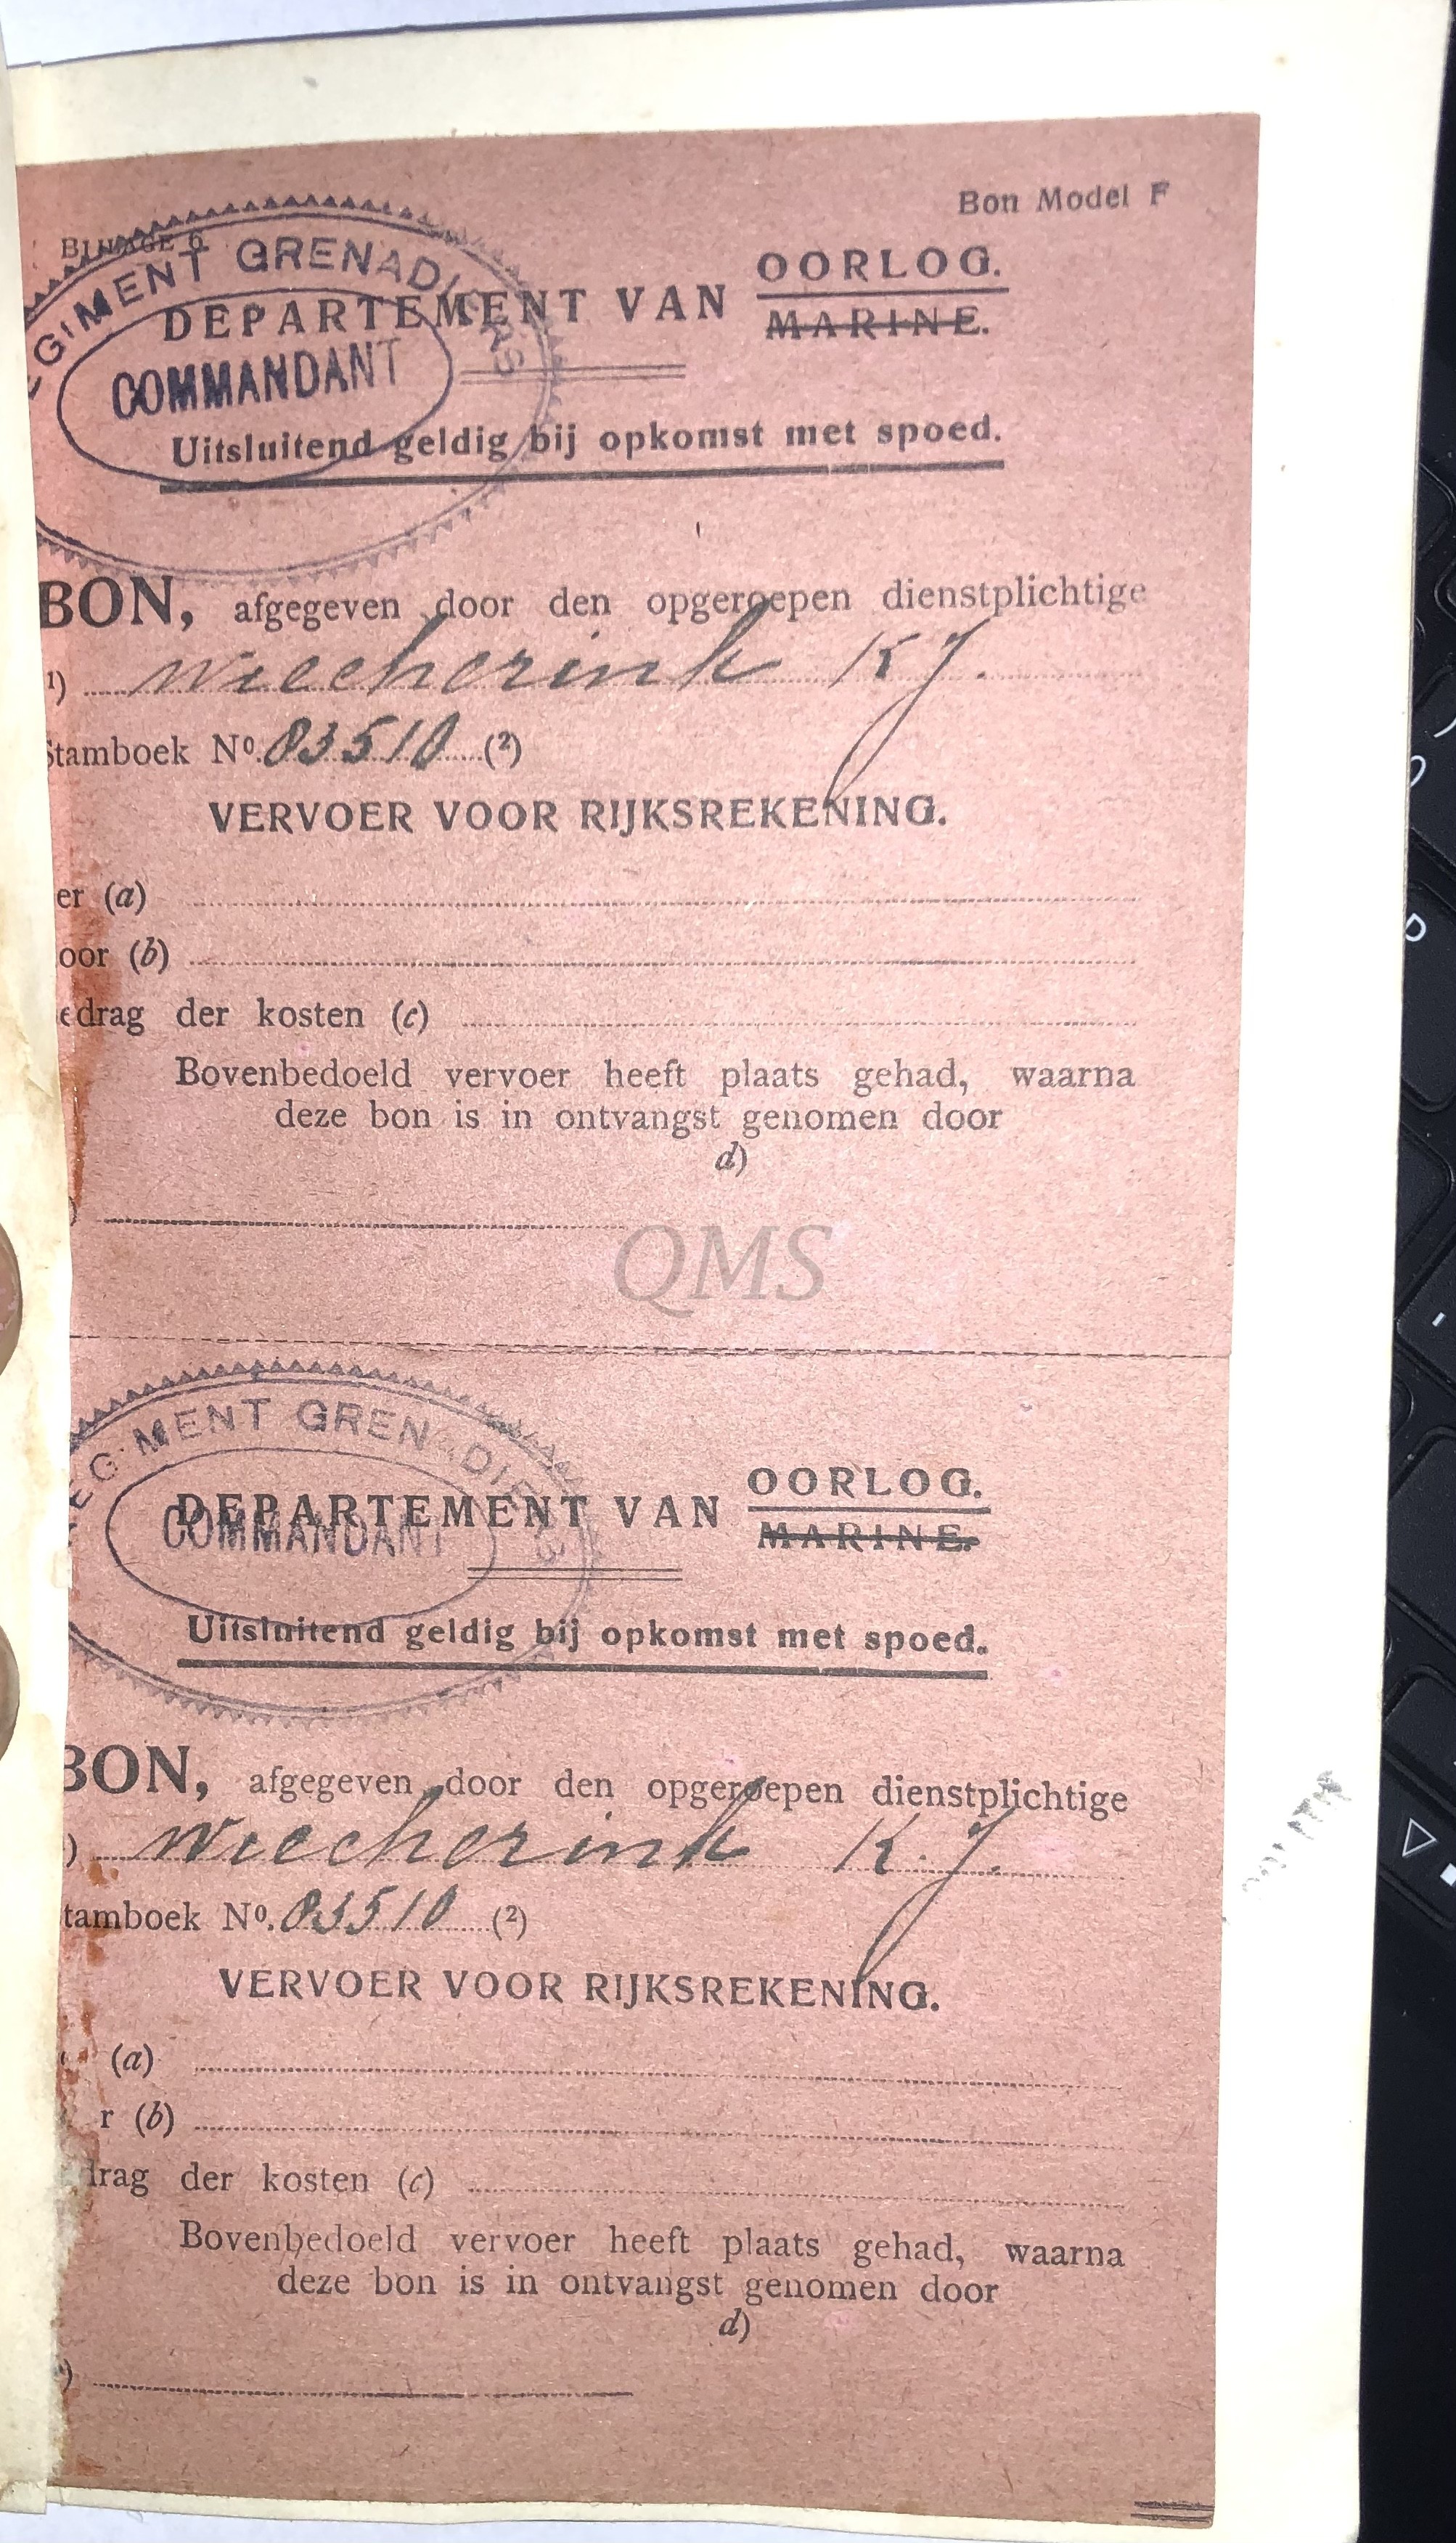 Bon Model F
BIJLAGE 6.
REGIMENT GRENADIERS
COMMANDANT
DEPARTEMENT VAN OORLOG.
MARINE.
Uitsluitend geldig bij opkomst met spoed.
BON, afgegeven door den opgeroepen dienstplichtige
1) Wiecherink K J.
Stamboek No. 83510 (2)
VERVOER VOOR RIJKSREKENING.
er (a)
oor (b)
edrag der kosten (c)
Bovenbedoeld vervoer heeft plaats gehad, waarna
deze bon is in ontvangst genomen door
d)
)
QMS
REGIMENT GRENADIERS
COMMANDANT
DEPARTEMENT VAN OORLOG.
MARINE.
Uitsluitend geldig bij opkomst met spoed.
BON, afgegeven door den opgeroepen dienstplichtige
) Wiecherink K. J.
tamboek No. 83510 (2)
VERVOER VOOR RIJKSREKENING.
(a)
r (b)
drag der kosten (c)
Bovenbedoeld vervoer heeft plaats gehad, waarna
deze bon is in ontvangst genomen door
d)
)